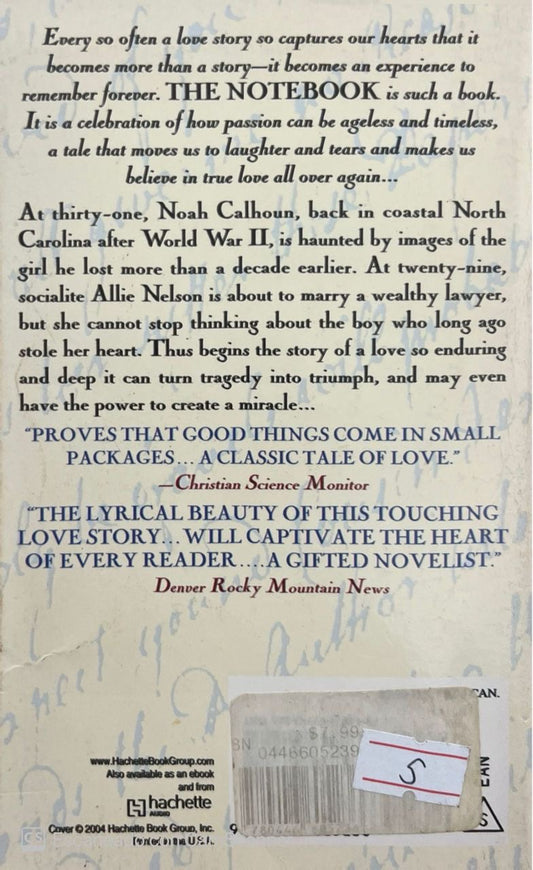 Every so often a love story so captures our hearts that it
becomes more than a story—it becomes an experience to
remember forever. THE NOTEBOOK is such a book.
It is a celebration of how passion can be ageless and timeless,
a tale that moves us to laughter and tears and makes us
believe in true love all over again...
At thirty-one, Noah Calhoun, back in coastal North
Carolina after World War II, is haunted by images of the
girl he lost more than a decade earlier. At twenty-nine,
socialite Allie Nelson is about to marry a wealthy lawyer,
but she cannot stop thinking about the boy who long ago
stole her heart. Thus begins the story of a love so enduring
and deep it can turn tragedy into triumph, and may even
have the power to create a miracle...
“PROVES THAT GOOD THINGS COME IN SMALL
PACKAGES... A CLASSIC TALE OF LOVE.”
—Christian Science Monitor
“THE LYRICAL BEAUTY OF THIS TOUCHING
LOVE STORY...WILL CAPTIVATE THE HEART
OF EVERY READER....A GIFTED NOVELIST.”
Denver Rocky Mountain News
CAN.
$7.99
0446605239
5
EAN
S
www.HachetteBookGroup.com
Also available as an ebook
and from
hachette
AUDIO
Cover © 2004 Hachette Book Group, Inc.
Printed in the U.S.A.
CS